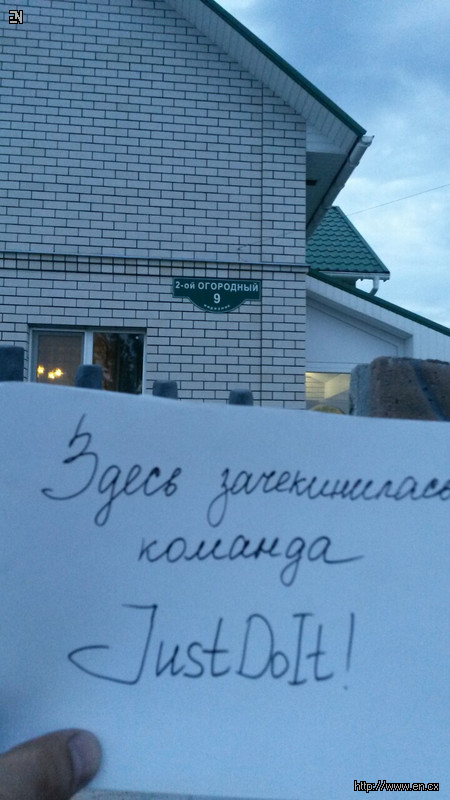 EN
2-ой ОГОРОДНЫЙ
9
переулок
Здесь зачекинилась
команда
JustDoIt!
http://www.en.cx